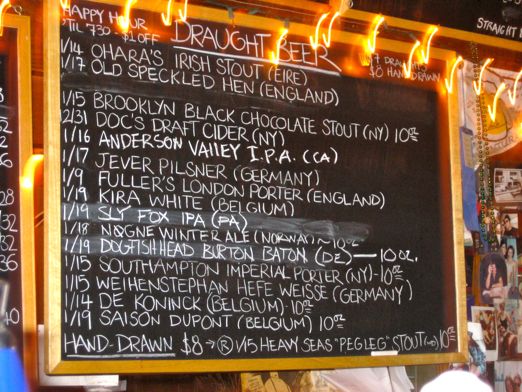 HAPPY HOUR
'TIL 730 - $1 OFF
DRAUGHT BEER
$7 DRAUGHTS
$8 HAND DRAWN
1/14 O'HARA'S IRISH STOUT (EIRE)
1/17 OLD SPECKLED HEN (ENGLAND)
1/15 BROOKLYN BLACK CHOCOLATE STOUT (NY) 10oz
12/31 DOC'S DRAFT CIDER (NY)
1/16 ANDERSON VALLEY I.P.A. (CA)
1/17 JEVER PILSNER (GERMANY)
1/9 FULLER'S LONDON PORTER (ENGLAND)
1/9 KIRA WHITE (BELGIUM)
1/19 SLY FOX IPA (PA)
1/18 NØGNE WINTER ALE (NORWAY) ~ 10oz
1/19 DOGFISHHEAD BURTON BATON (DE) — 10 oz.
1/15 SOUTHAMPTON IMPERIAL PORTER (NY) - 10oz
1/15 WEIHENSTEPHAN HEFE WEISSE (GERMANY)
1/14 DE KONINCK (BELGIUM) 10oz
1/19 SAISON DUPONT (BELGIUM) 10oz
HAND-DRAWN $8 → Ⓡ 1/15 HEAVY SEAS "PEG LEG" STOUT (MD) 10oz
STRAIGHT